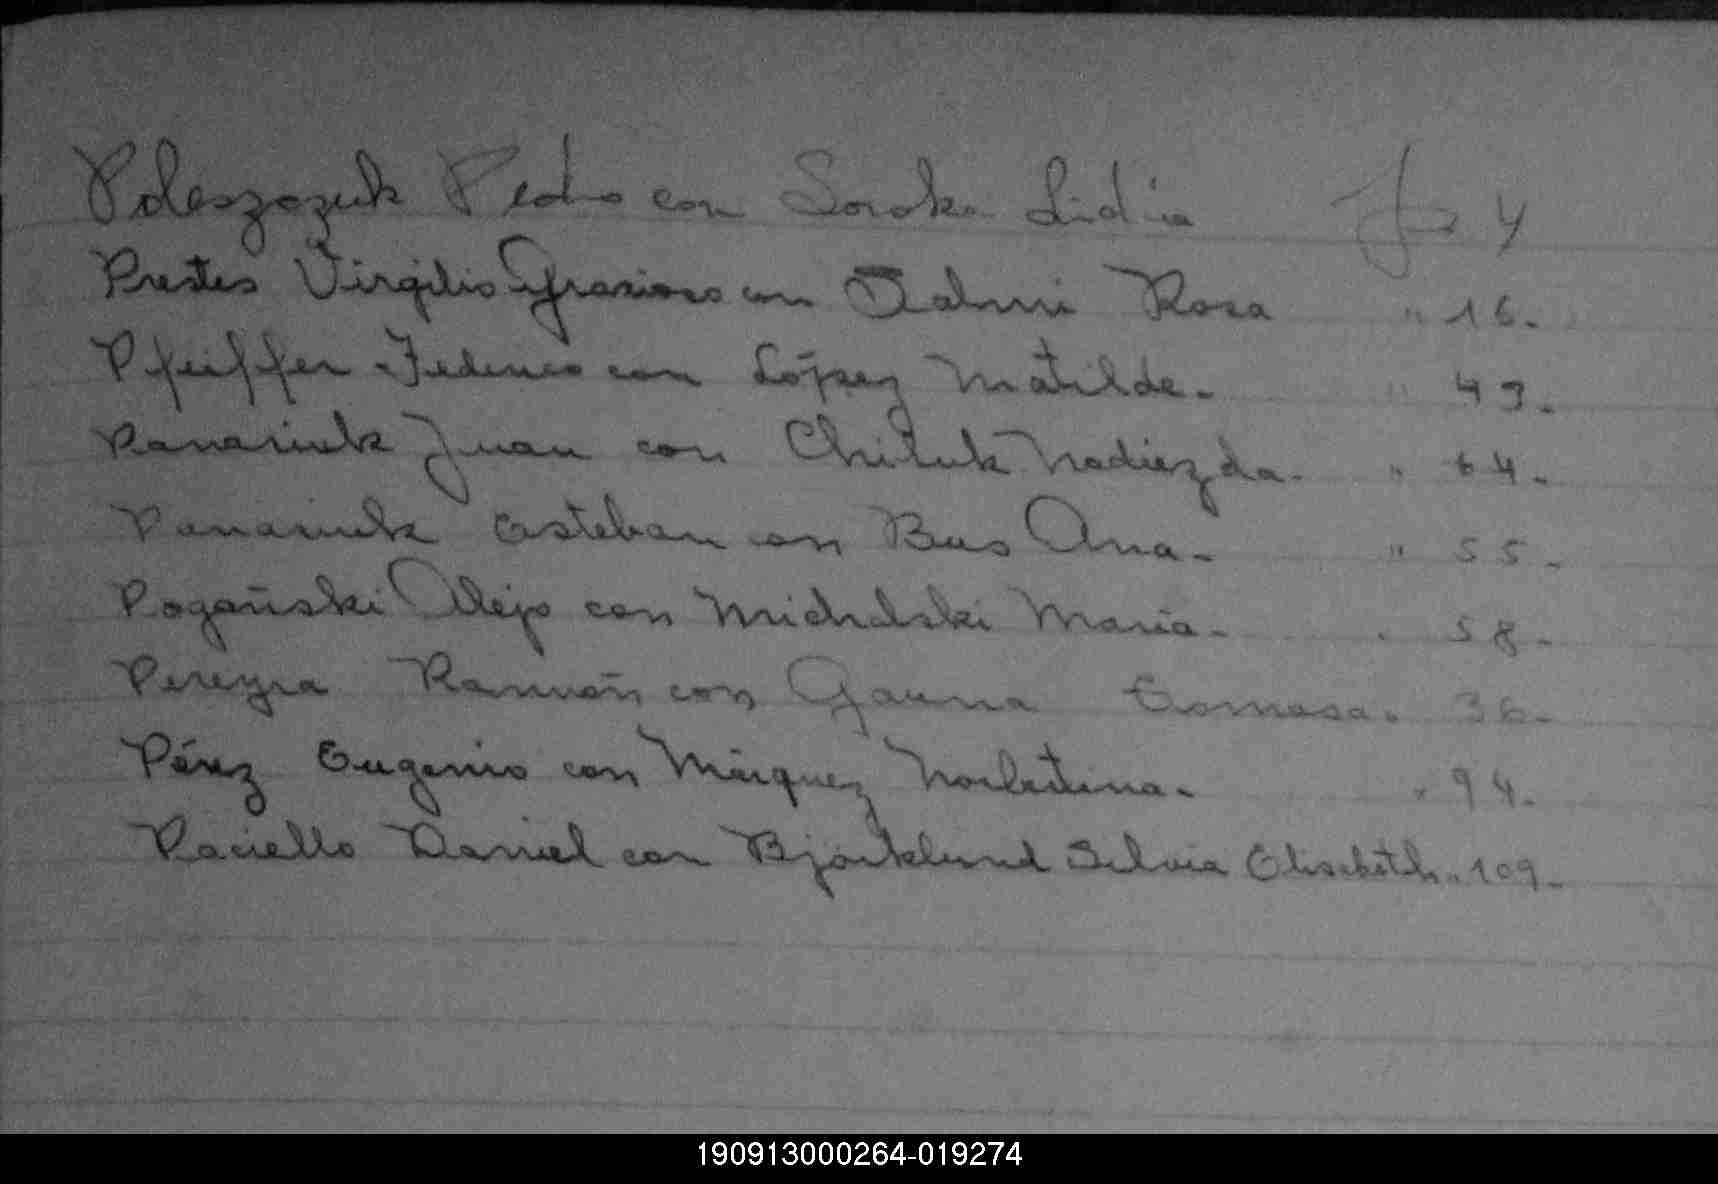 Poleszczuk Pedro con Soroka Lidia Fs 4
Prestes Virgilio Grasioso con Dalmi Rosa " 16.
Pfeiffer Federico con López Matilde. " 49.
Panasiuk Juan con Chiluk Nadiezda. " 64.
Panasiuk Esteban con Bus Ana. " 55.
Pogañski Alejo con Michalski María. . 58.
Pereyra Ramón con Gauna Tomasa. 36.
Pérez Eugenio con Márquez Norbertina. " 94.
Paciello Daniel con Bjorklund Silvia Elisabeth. 109.
190913000264-019274